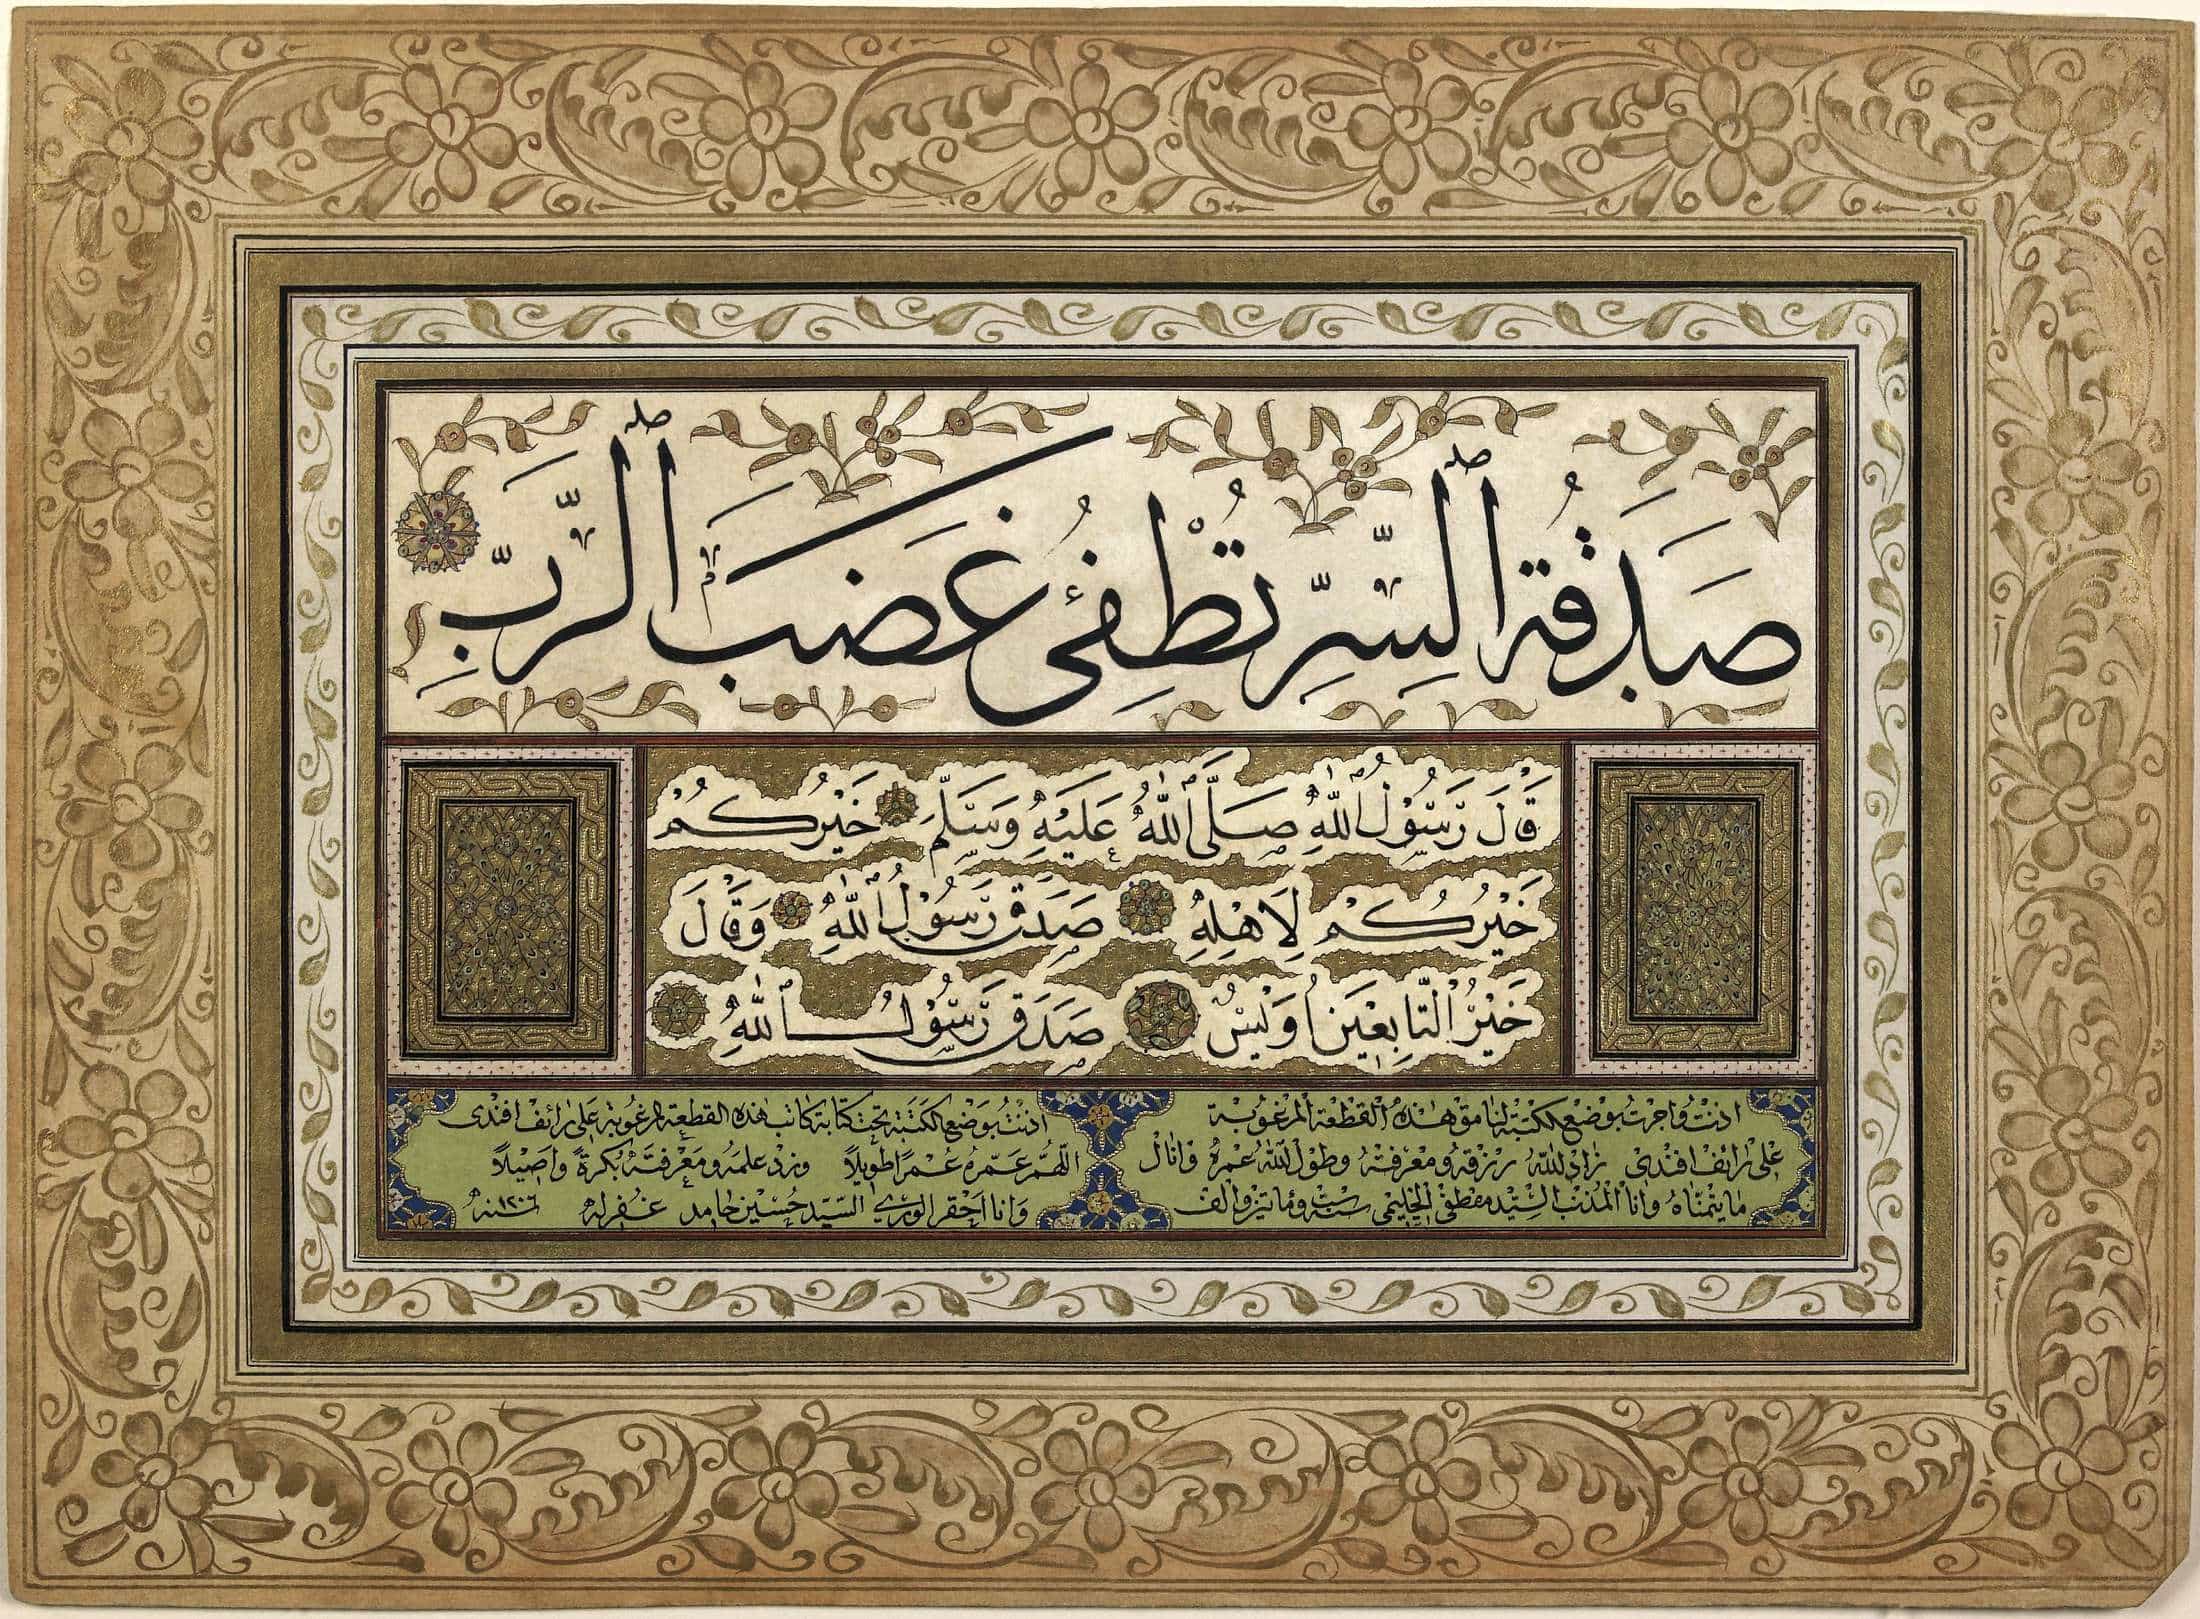 صَدَقَةُ ٱلسِّرِّ تُطْفِئُ غَضَبَ ٱلرَّبِّ
قَالَ رَسُوْلُ ٱللّٰهِ صَلَّى ٱللّٰهُ عَلَيْهِ وَسَلَّمَ خَيْرُكُمْ
خَيْرُكُمْ لِاَهْلِهِ صَدَقَ رَسُوْلُ ٱللّٰهِ وَقَالَ
خَيْرُ الْتَّابِعِيَن اُوَيْسٌ صَدَقَ رَسُوْلُ ٱللّٰهِ
اذنْتُ واجرتُ بوضع الكتبة لنامق هٰذهُ القطعة المرغوبة
على رائف افندى زاد اللّٰهُ رزقه ومعرفتهُ وطول اللّٰه عمره وانال
ما يتمناه وانا المذنب السيّد مصطفى الحليمي ست ومائتين والف
اذنتُ بوضع الكتبة تحت كتابة كاتب هذه القطعة المرغوبة على رائف افندى
اللّهمّ عمّره عُمرًا طويلاً وزد علمهُ ومعرفتهُ بكرةً واصيلاً
وانا احقر الورى السيّد حسين حامد غفر له سنه ١٢٠٦